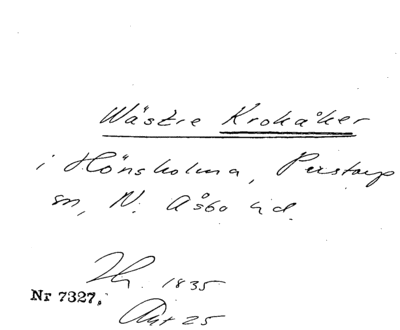 Wästre Krokåker
i Hönsholma, Perstorp
sn, N. Åsbo hd.
Lh. 1835
Nr 7327,
Akt 25